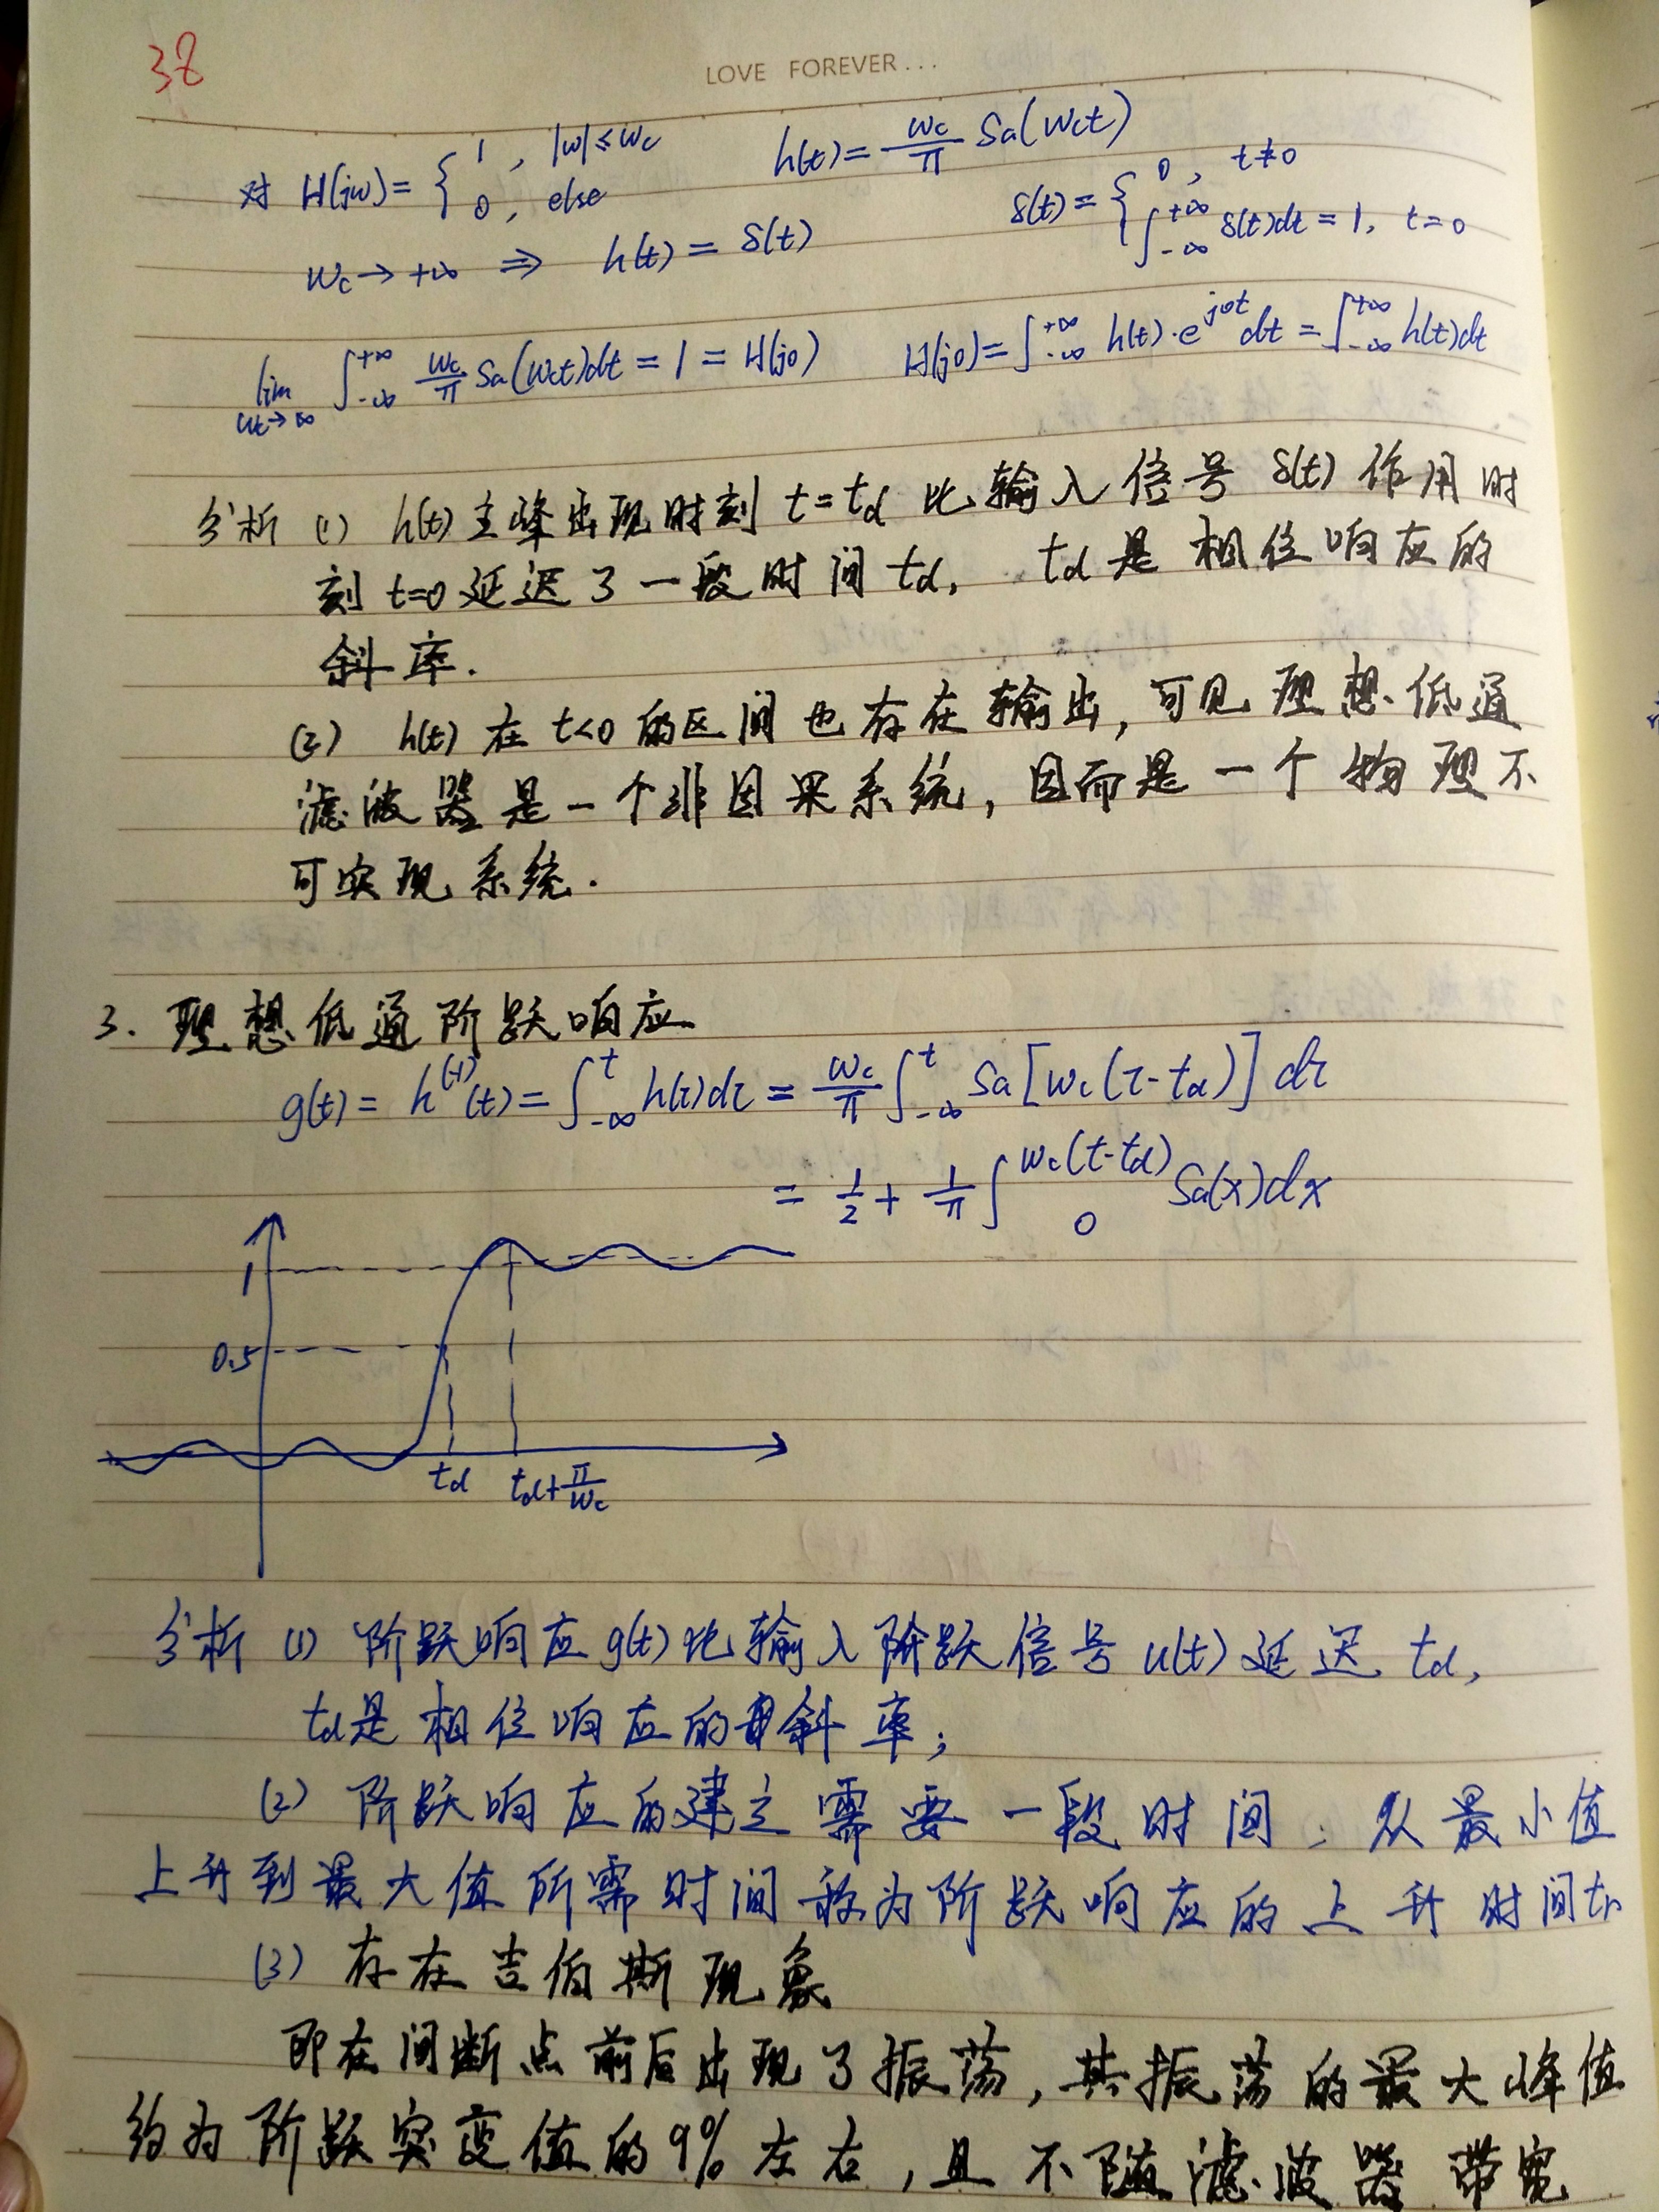 38
LOVE FOREVER...
对 H(jω) = { 1 , |ω| ≤ ωc
0 , else
h(t) = ωc/π Sa(ωct)
ωc → +∞ ⇒ h(t) = δ(t)
δ(t) = { 0 , t≠0
∫_{-∞}^{+∞} δ(t)dt = 1, t=0
lim_{ωc→∞} ∫_{-∞}^{+∞} ωc/π Sa(ωct)dt = 1 = H(j0)
H(j0) = ∫_{-∞}^{+∞} h(t)·e^{j0t}dt = ∫_{-∞}^{+∞} h(t)dt
分析 (1) h(t)主峰出现时刻 t=td 比输入信号 δ(t) 作用时
刻 t=0 延迟了一段时间 td, td 是相位响应的
斜率.
(2) h(t) 在 t<0 的区间也存在输出, 可见理想低通
滤波器是一个非因果系统, 因而是一个物理不
可实现系统.
3. 理想低通阶跃响应
g(t) = h^{(-1)}(t) = ∫_{-∞}^{t} h(τ)dτ = ωc/π ∫_{-∞}^{t} Sa[ωc(τ-td)]dτ
= 1/2 + 1/π ∫_{0}^{ωc(t-td)} Sa(x)dx
1
0.5
td
td+π/ωc
分析 (1) 阶跃响应 g(t) 比输入阶跃信号 u(t) 延迟 td,
td是相位响应的斜率;
(2) 阶跃响应的建立需要一段时间, 从最小值
上升到最大值所需时间称为阶跃响应的上升时间tr
(3) 存在吉伯斯现象
即在间断点前后出现了振荡, 其振荡的最大峰值
约为阶跃突变值的9%左右, 且不随滤波器带宽